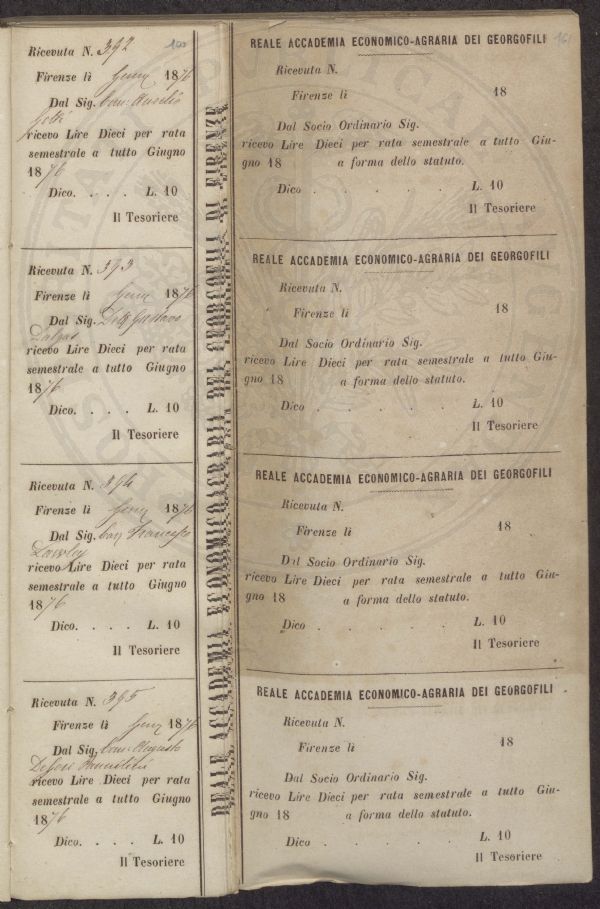 100
Ricevuta N. 392
Firenze lì 1876
Dal Sig. Aurelio
ricevo Lire Dieci per rata
semestrale a tutto Giugno
1876
Dico. . . . L. 10
Il Tesoriere
Ricevuta N. 393
Firenze lì 1876
Dal Sig. Gustavo
Dalgas
ricevo Lire Dieci per rata
semestrale a tutto Giugno
1876
Dico. . . . L. 10
Il Tesoriere
Ricevuta N. 394
Firenze lì 1876
Dal Sig. Francesco
Lawley
ricevo Lire Dieci per rata
semestrale a tutto Giugno
1876
Dico. . . . L. 10
Il Tesoriere
Ricevuta N. 395
Firenze lì 1876
Dal Sig. Augusto
ricevo Lire Dieci per rata
semestrale a tutto Giugno
1876
Dico. . . . L. 10
Il Tesoriere
REALE ACCADEMIA ECONOMICO-AGRARIA DEI GEORGOFILI DI FIRENZE
161
REALE ACCADEMIA ECONOMICO-AGRARIA DEI GEORGOFILI
Ricevuta N.
Firenze lì 18
Dal Socio Ordinario Sig.
ricevo Lire Dieci per rata semestrale a tutto Giu-
gno 18 a forma dello statuto.
Dico . . . . . L. 10
Il Tesoriere
REALE ACCADEMIA ECONOMICO-AGRARIA DEI GEORGOFILI
Ricevuta N.
Firenze lì 18
Dal Socio Ordinario Sig.
ricevo Lire Dieci per rata semestrale a tutto Giu-
gno 18 a forma dello statuto.
Dico . . . . . L. 10
Il Tesoriere
REALE ACCADEMIA ECONOMICO-AGRARIA DEI GEORGOFILI
Ricevuta N.
Firenze lì 18
Dal Socio Ordinario Sig.
ricevo Lire Dieci per rata semestrale a tutto Giu-
gno 18 a forma dello statuto.
Dico . . . . . L. 10
Il Tesoriere
REALE ACCADEMIA ECONOMICO-AGRARIA DEI GEORGOFILI
Ricevuta N.
Firenze lì 18
Dal Socio Ordinario Sig.
ricevo Lire Dieci per rata semestrale a tutto Giu-
gno 18 a forma dello statuto.
Dico . . . . . L. 10
Il Tesoriere